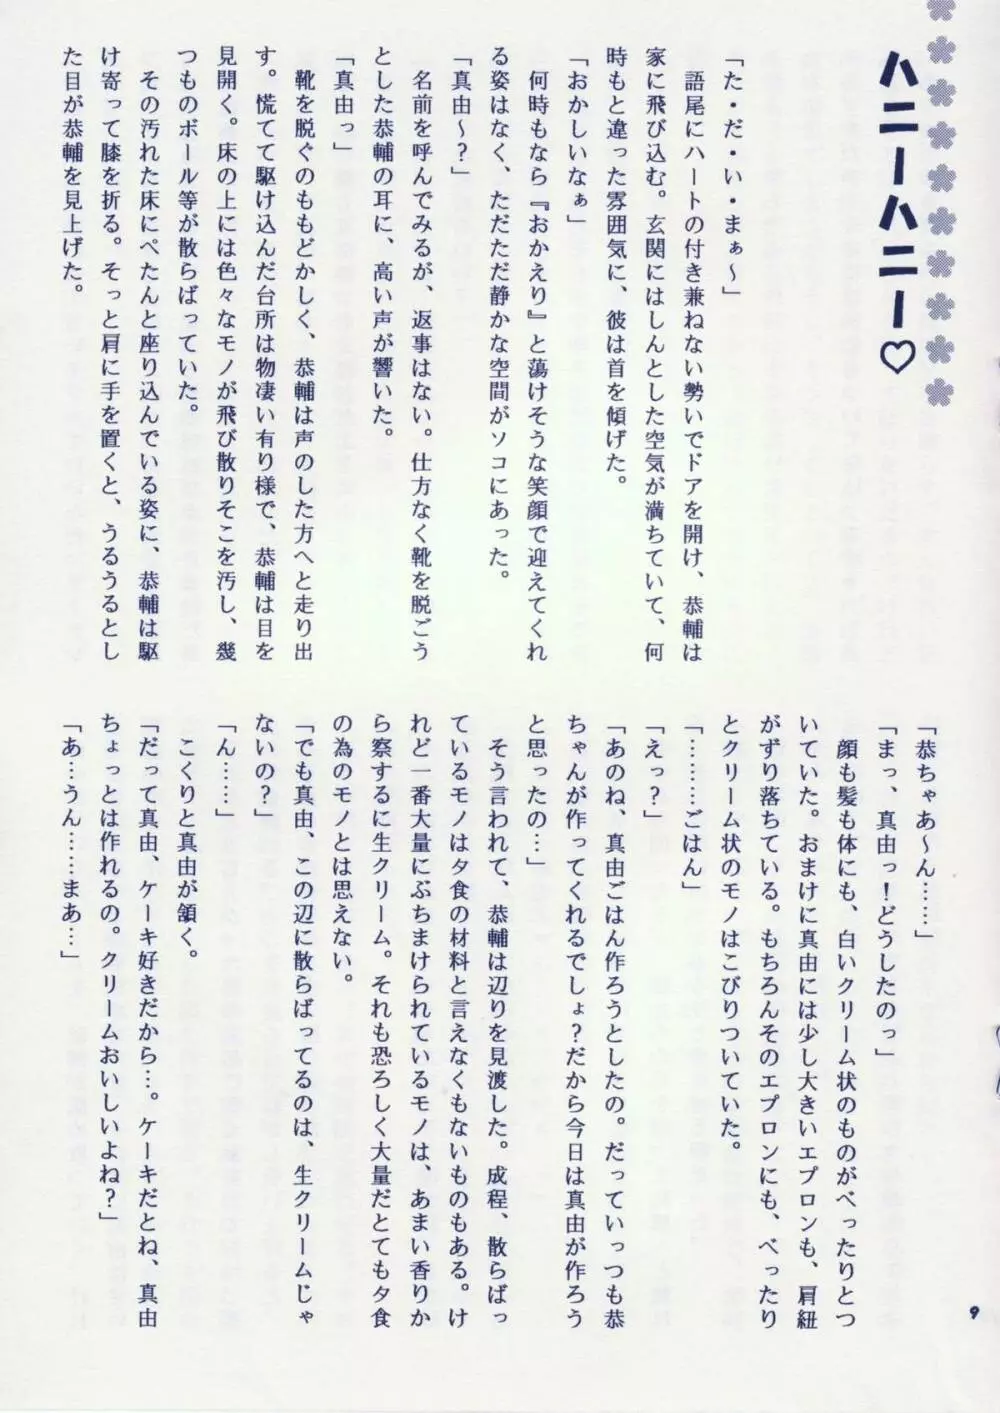 ハニーハニー♡
「た・だ・い・まぁ～」
語尾にハートの付き兼ねない勢いでドアを開け、恭輔は
家に飛び込む。玄関にはしんとした空気が満ちていて、何
時もと違った雰囲気に、彼は首を傾げた。
「おかしいなぁ」
何時もなら『おかえり』と蕩けそうな笑顔で迎えてくれ
る姿はなく、ただただ静かな空間がソコにあった。
「真由～？」
名前を呼んでみるが、返事はない。仕方なく靴を脱ごう
とした恭輔の耳に、高い声が響いた。
「真由っ」
靴を脱ぐのももどかしく、恭輔は声のした方へと走り出
す。慌てて駆け込んだ台所は物凄い有り様で、恭輔は目を
見開く。床の上には色々なモノが飛び散りそこを汚し、幾
つものボール等が散らばっていた。
その汚れた床にぺたんと座り込んでいる姿に、恭輔は駆
け寄って膝を折る。そっと肩に手を置くと、うるうるとし
た目が恭輔を見上げた。
「恭ちゃあ～ん……」
「まっ、真由っ！どうしたのっ」
顔も髪も体にも、白いクリーム状のものがべったりとつ
いていた。おまけに真由には少し大きいエプロンも、肩紐
がずり落ちている。もちろんそのエプロンにも、べったり
とクリーム状のモノはこびりついていた。
「………ごはん」
「えっ？」
「あのね、真由ごはん作ろうとしたの。だっていっつも恭
ちゃんが作ってくれるでしょ？だから今日は真由が作ろう
と思ったの…」
そう言われて、恭輔は辺りを見渡した。成程、散らばっ
ているモノは夕食の材料と言えなくもないものもある。け
れど一番大量にぶちまけられているモノは、あまい香りか
ら察するに生クリーム。それも恐ろしく大量だとても夕食
の為のモノとは思えない。
「でも真由、この辺に散らばってるのは、生クリームじゃ
ないの？」
「ん……」
こくりと真由が頷く。
「だって真由、ケーキ好きだから…。ケーキだとね、真由
ちょっとは作れるの。クリームおいしいよね？」
「あ…うん……まあ…」
9